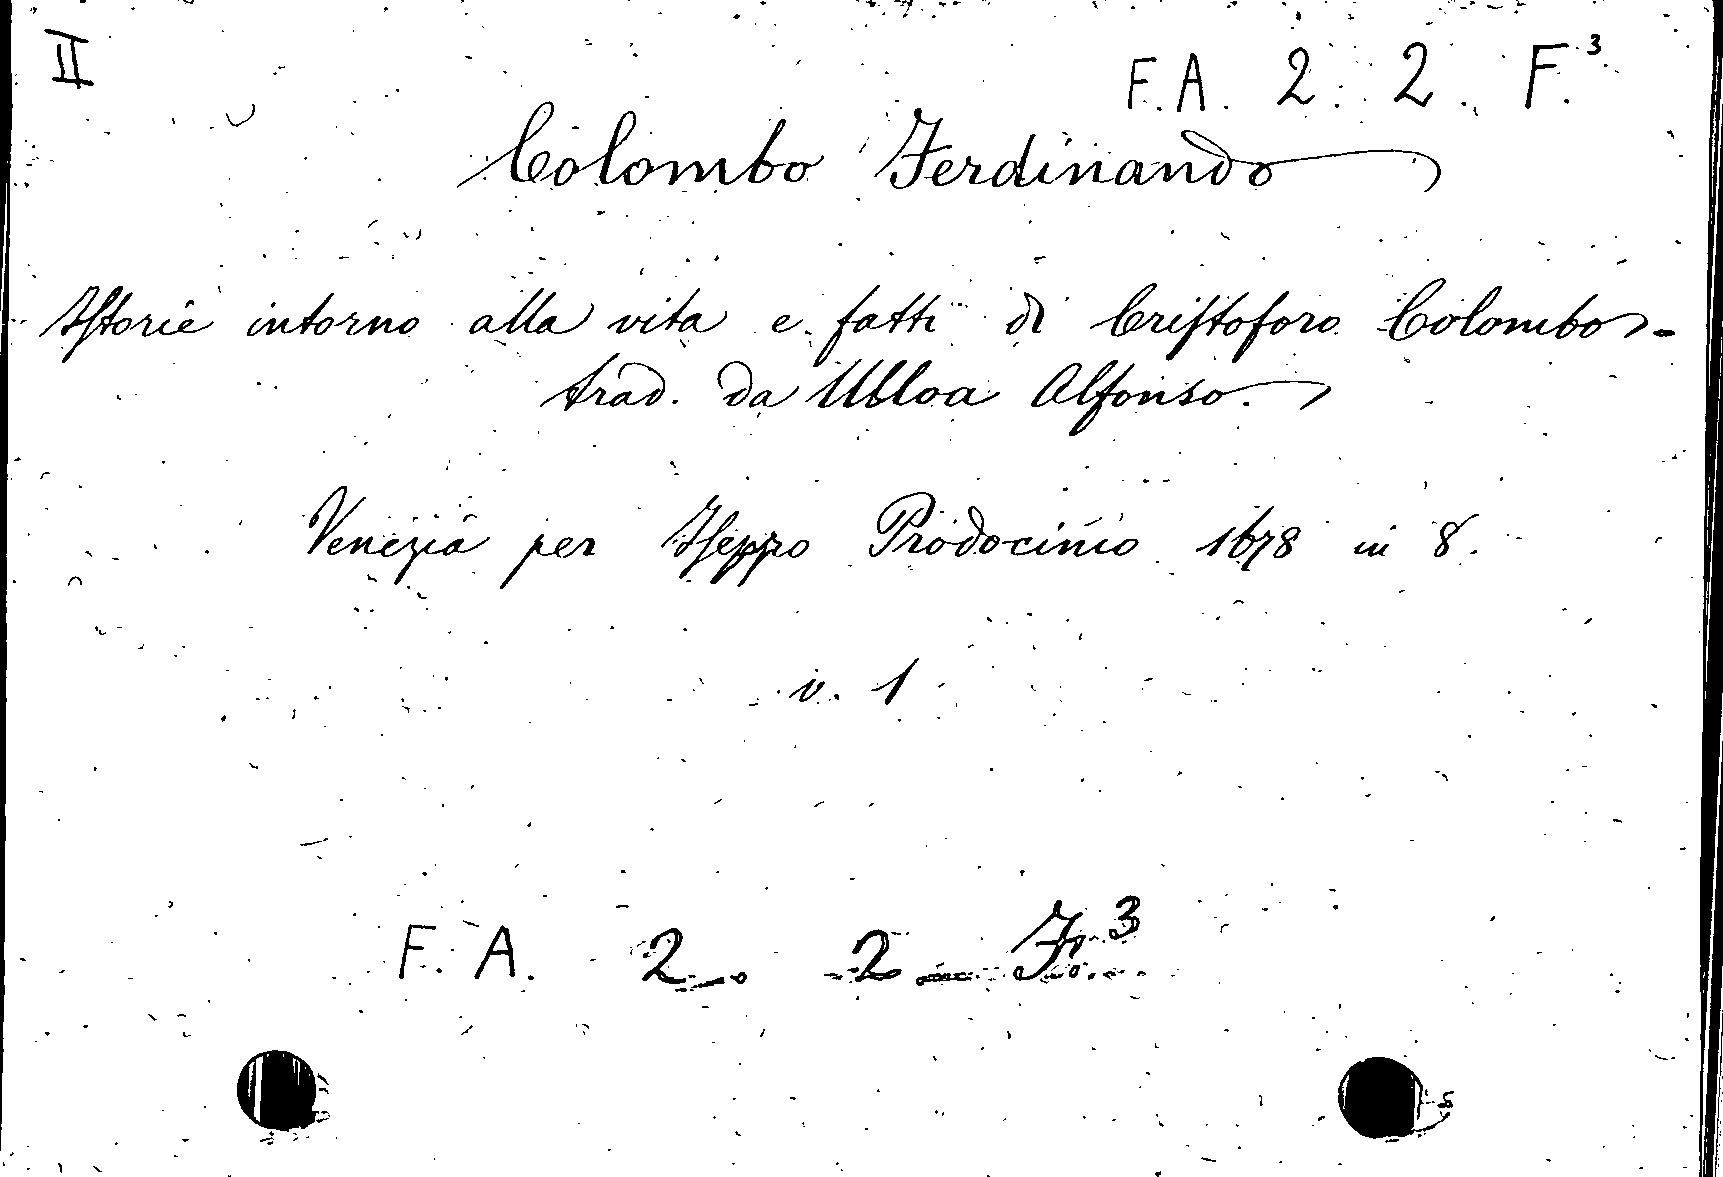 II
F. A. 2. 2. F.³
Colombo Ferdinando
Istorie intorno alla vita e fatti di Cristoforo Colombo -
trad. da Ulloa Alfonso.
Venezia per Iseppo Prodocimo 1678 in 8.
v. 1
F. A. 2. 2 - F.³